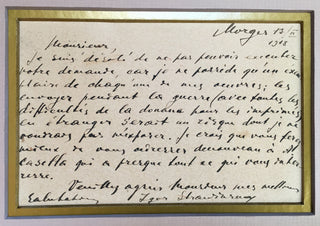 Morges 13 II
1918
Monsieur
Je suis désolé de ne pas pouvoir executer
votre demande, car je ne possède qu'un exem
plaire de chaqu'une de mes oeuvres; les
envoyer pendant la guerre (avec toutes les
difficultés de la douane pour les imprimés)
en étranger serait un risque dont je ne
voudrais pas m'exposer. Je crois que vous ferez
mieux de vous adresser denouveau à
Casella qui a presque tout ce qui vous inte
resse.
Veuillez agréer Monsieur mes meilleures
Salutations
Igor Strawinsky